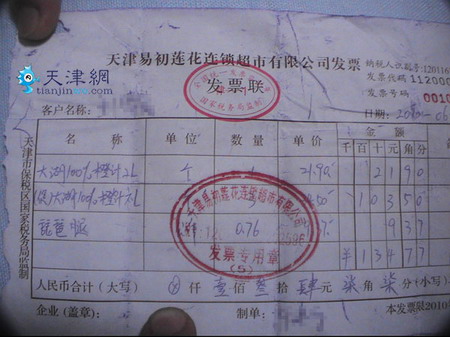 天津易初莲花连锁超市有限公司发票
发票联
纳税人识别号:120116
发票代码 112000
发票号码 0010
天津網
tianjinwe.com
国家税务局监制
客户名称:
日期: 2010
名称 单位 数量 单价 金额
千 百 十 元 角 分
大湖100%橙汁2L 个 1 21.90 2 1 9 0
大湖100%橙汁2L 1 0 3 5 0
琵琶腿 0.76 9 3 7
¥ 1 3 4 7 7
天津易初莲花连锁超市有限公司
发票专用章
(5)
人民币合计(大写) ⊗ 仟 壹 佰 叁 拾 肆 元 柒 角 柒 分(小写)
企业(盖章): 制单: 本发票限2010年
天津市保税区国家税务局监制